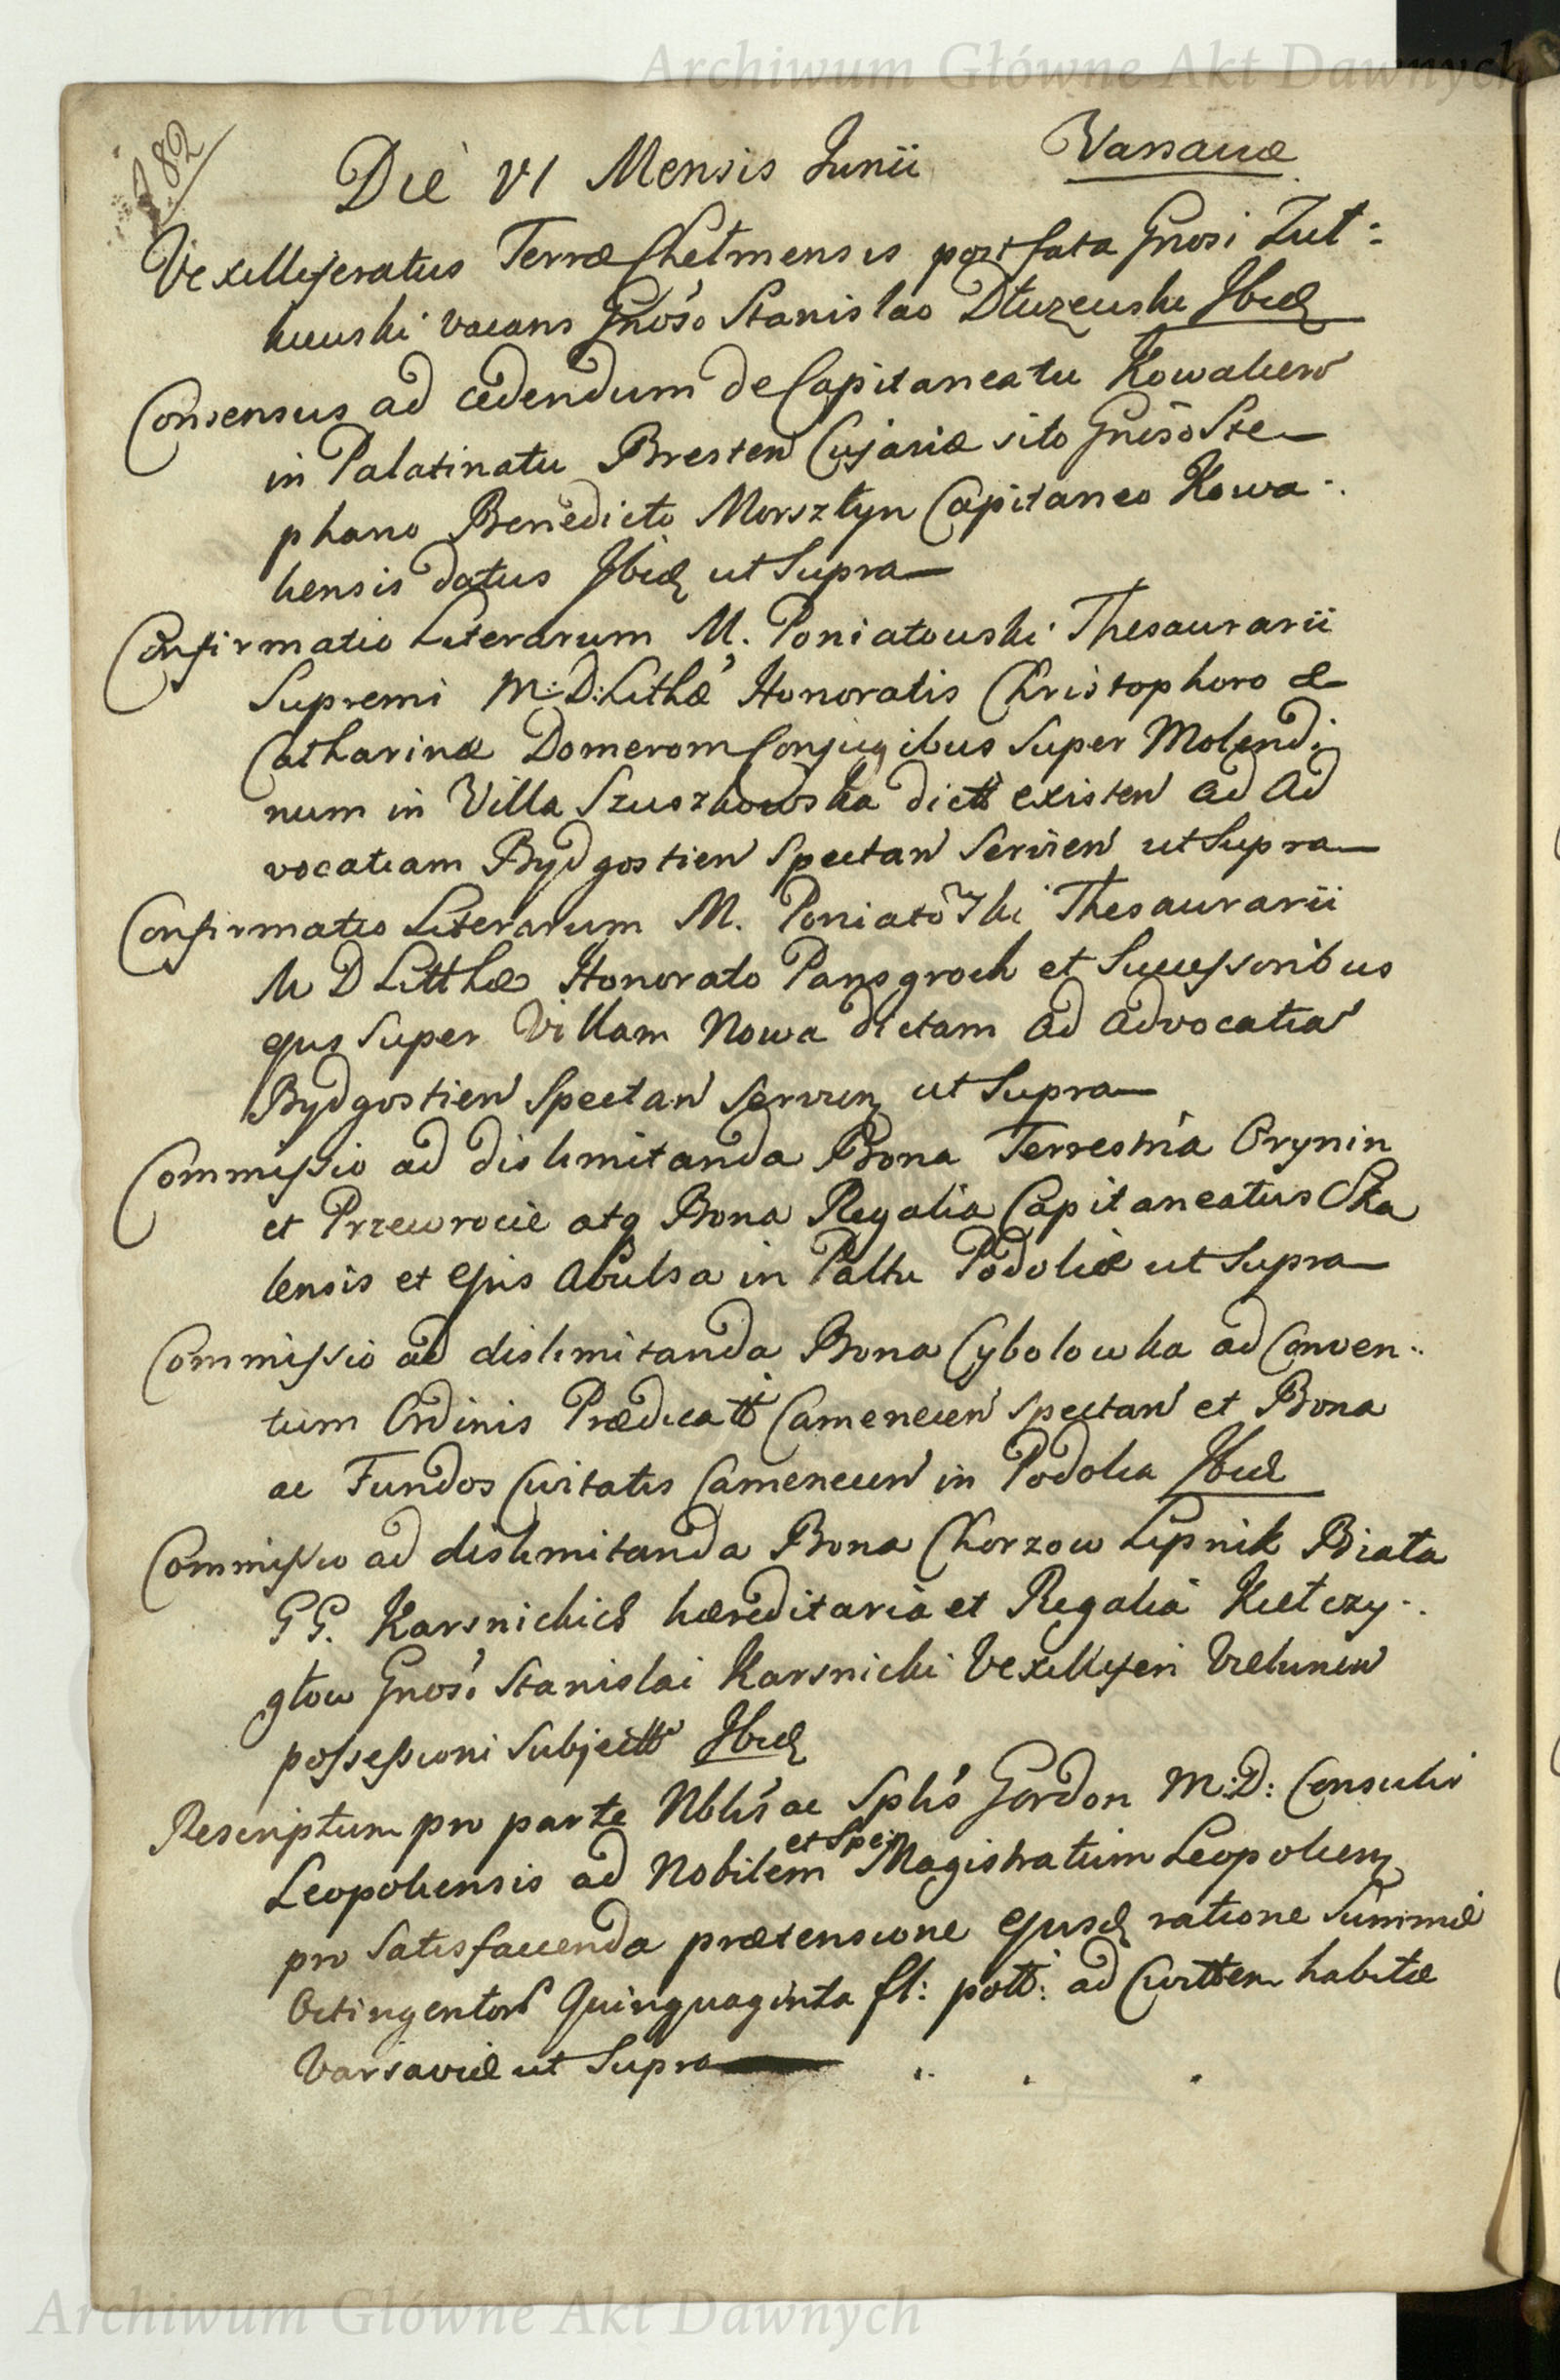 Archiwum Główne Akt Dawnych
282
Die VI Mensis Junii Varsaviæ
Vexilliferatus Terræ Chełmensis post fata Gnosi Żuł-
kiewski vacans Gnoso Stanislao Dłużewski Ibid
Consensus ad cedendum de Capitaneatu Kowalien
in Palatinatu Bresten Cujaviæ sito Gnoso Ste-
phano Benedicto Morsztyn Capitaneo Kowa-
liensis datus Ibid ut Supra
Confirmatio Literarum M. Poniatowski Thesaurarii
Supremi M: D: Lithæ Honoratis Christophoro &
Catharinæ Domerom Conjugibus Super Molendi
num in Villa Szuszkowska dictt existen ad Ad
vocatiam Bydgostien Spectan Servien ut Supra
Confirmatio Literarum M. Poniatowski Thesaurarii
M D Litthæ Honorato Pansgroch et Successoribus
ejus Super Villam Nowa dictam ad Advocatia
Bydgostien Spectan Servien ut Supra
Commissio ad dislimitanda Bona Terrestria Orynin
et Przewrocie atq Bona Regalia Capitaneatus Ska
lensis et Ejus Avulsa in Palttu Podoliæ ut Supra
Commissio ad dislimitanda Bona Cybolowka ad Conven-
tum Ordinis Prædicatt Camenecen spectan et Bona
ac Fundos Civitatis Camenecen in Podolia Ibid
Commissio ad dislimitanda Bona Chorzow Lipnik Biała
GG. Karsnickich hæreditaria et Regalia Kiełczy-
głow Gnosi Stanislai Karsnicki Vexilliferi Vielunen
possessioni Subjectt Ibid
Rescriptum pro parte Nblis ac Splis Gordon M: D: Consulis
Leopoliensis ad Nobilem et Spen Magistratum Leopolien
pro Satisfacienda prætensione Ejusd ratione Summæ
Octingentor Quinquaginta fl: poll: ad Civittem habitæ
Varsaviæ ut Supra
Archiwum Główne Akt Dawnych